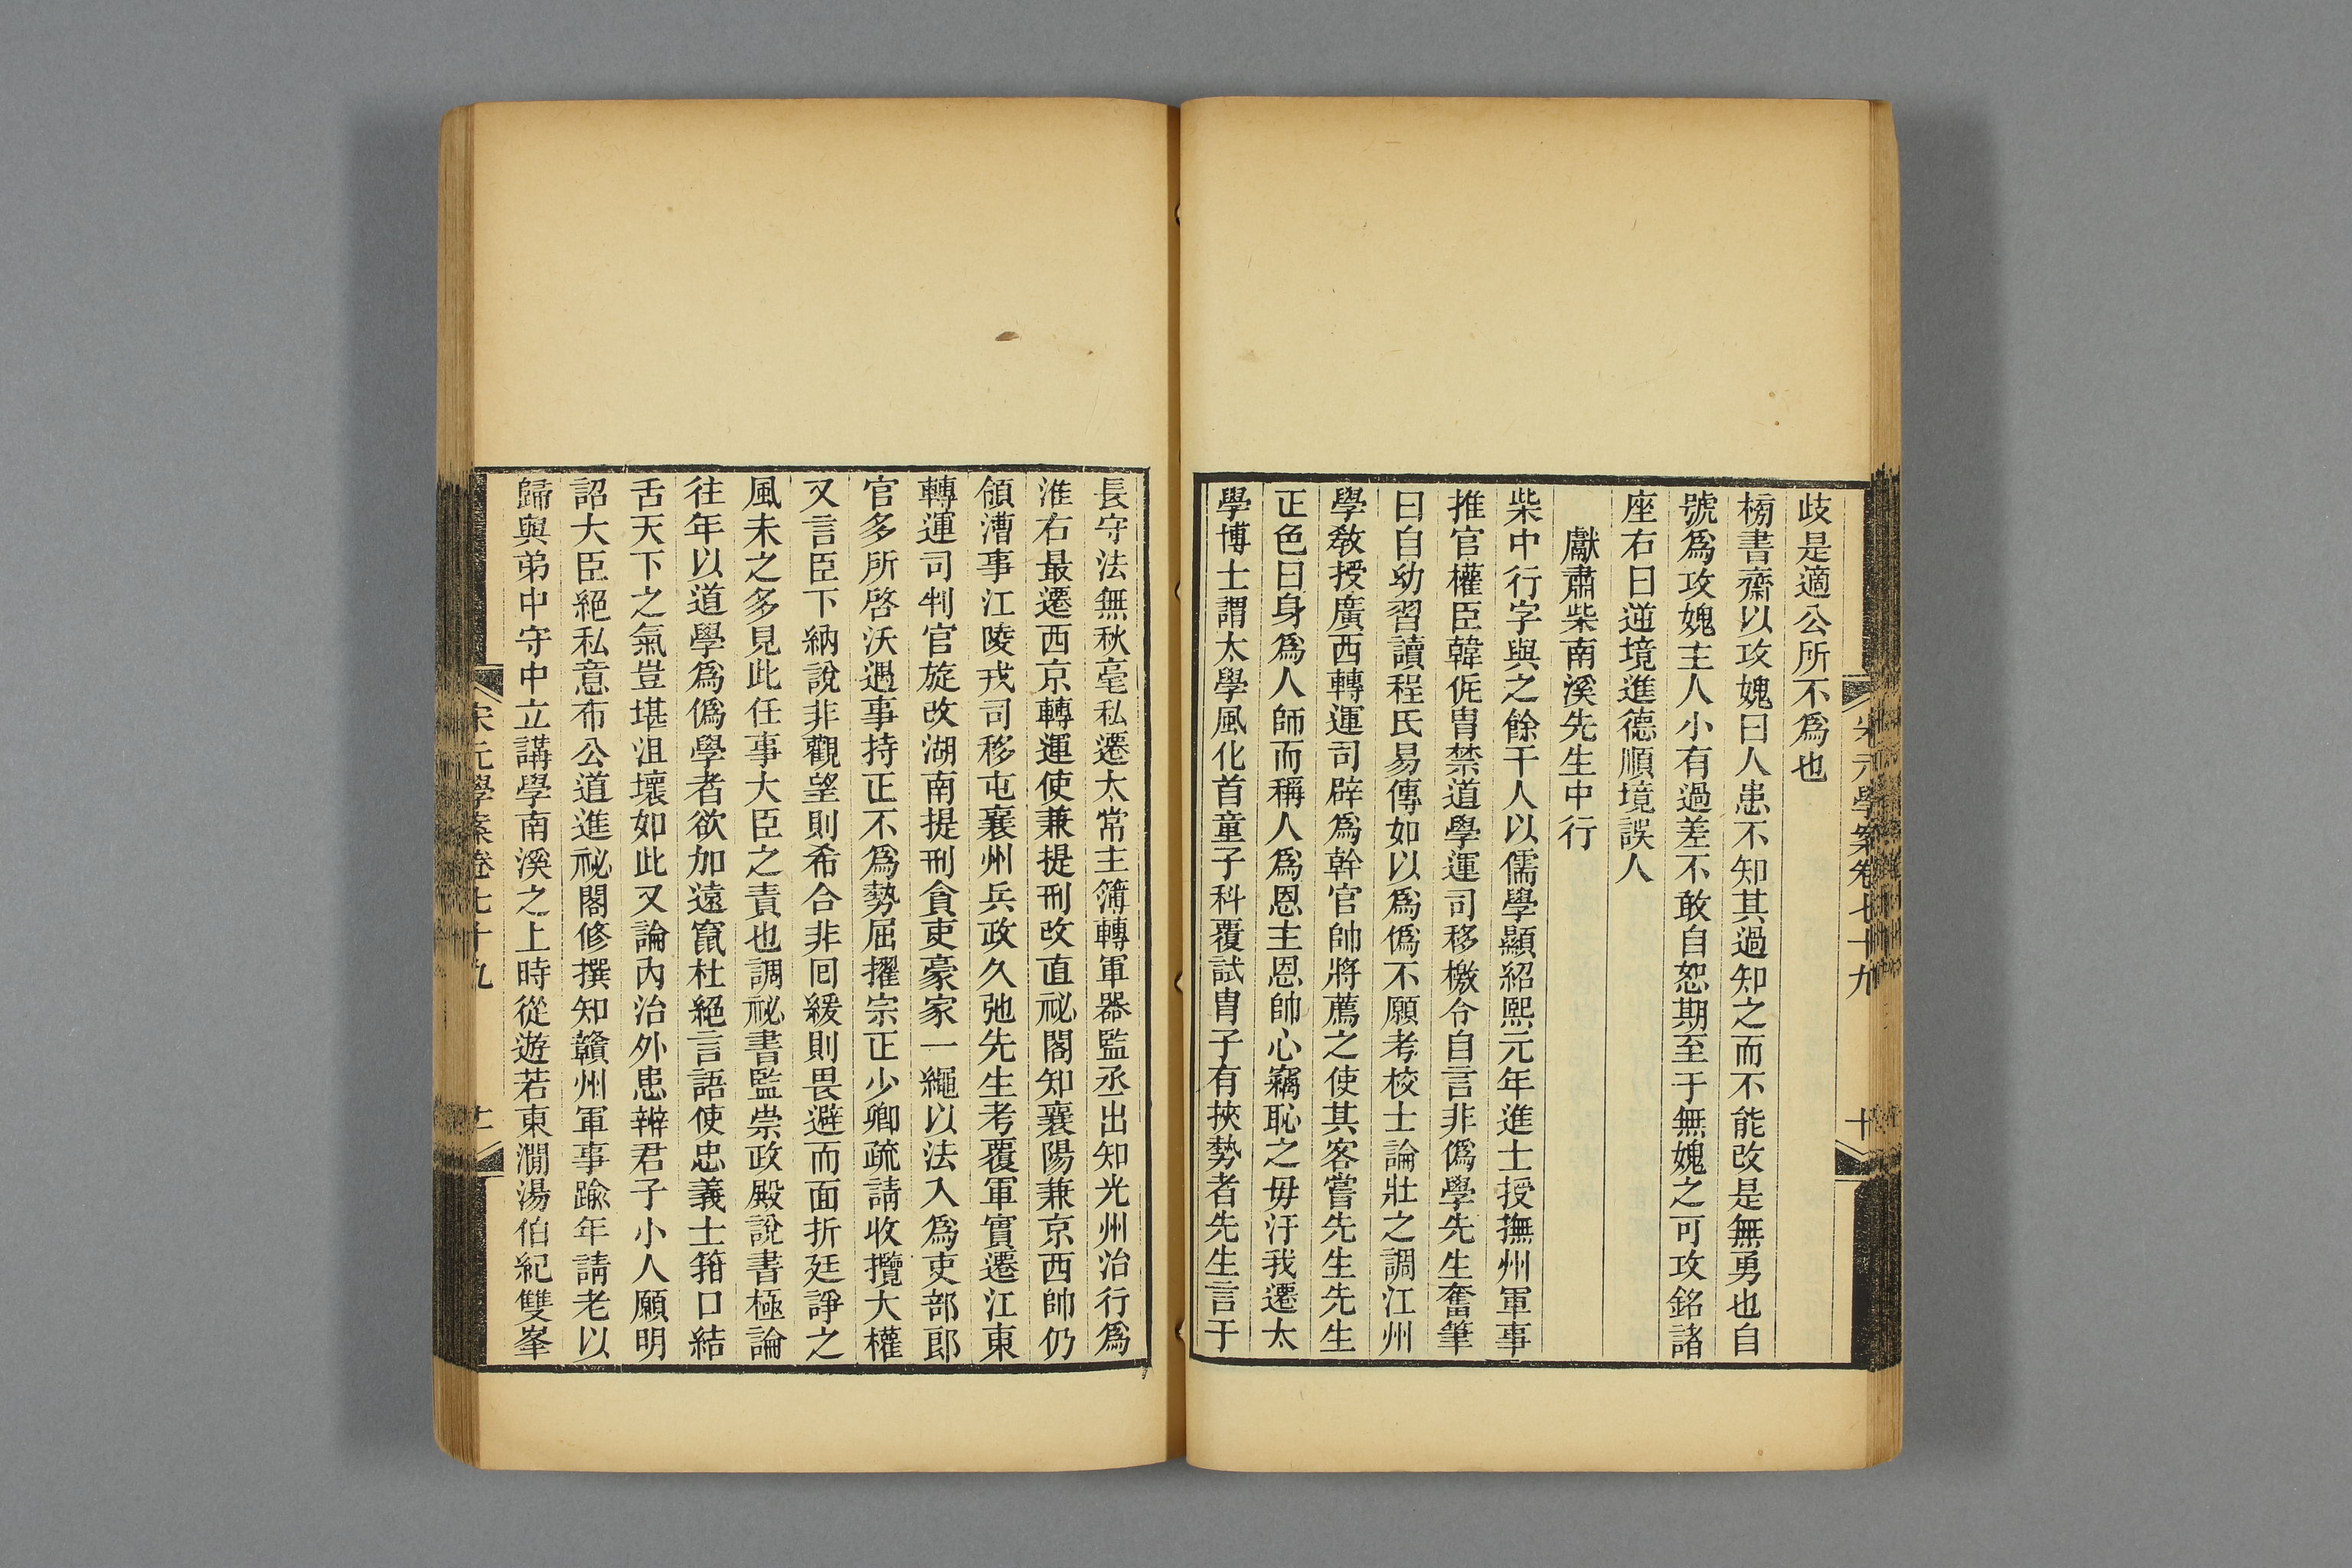 宋元學案卷七十九
十
歧是適公所不爲也
榜書齋以攻媿曰人患不知其過知之而不能改是無勇也自
號爲攻媿主人小有過差不敢自恕期至于無媿之可攻銘諸
座右曰逆境進德順境誤人
獻肅柴南溪先生中行
柴中行字與之餘干人以儒學顯紹熙元年進士授撫州軍事
推官權臣韓侂胄禁道學運司移檄令自言非僞學先生奮筆
曰自幼習讀程氏易傳如以爲僞不願考校士論壯之調江州
學敎授廣西轉運司辟爲幹官帥將薦之使其客嘗先生先生
正色曰身爲人師而稱人爲恩主恩帥心竊恥之毋汙我遷太
學博士謂太學風化首童子科覆試胄子有挾勢者先生言于
長守法無秋毫私遷太常主簿轉軍器監丞出知光州治行爲
淮右最遷西京轉運使兼提刑改直祕閣知襄陽兼京西帥仍
領漕事江陵戎司移屯襄州兵政久弛先生考覆軍實遷江東
轉運司判官旋改湖南提刑貪吏豪家一繩以法入爲吏部郎
官多所啓沃遇事持正不爲勢屈擢宗正少卿疏請收攬大權
又言臣下納說非觀望則希合非囘緩則畏避而面折廷諍之
風未之多見此任事大臣之責也調祕書監崇政殿說書極論
往年以道學爲僞學者欲加遠竄杜絕言語使忠義士箝口結
舌天下之氣豈堪沮壞如此又論內治外患辨君子小人願明
詔大臣絕私意布公道進祕閣修撰知贛州軍事踰年請老以
歸與弟中守中立講學南溪之上時從遊若東澗湯伯紀雙峯
宋元學案卷七十九
十一